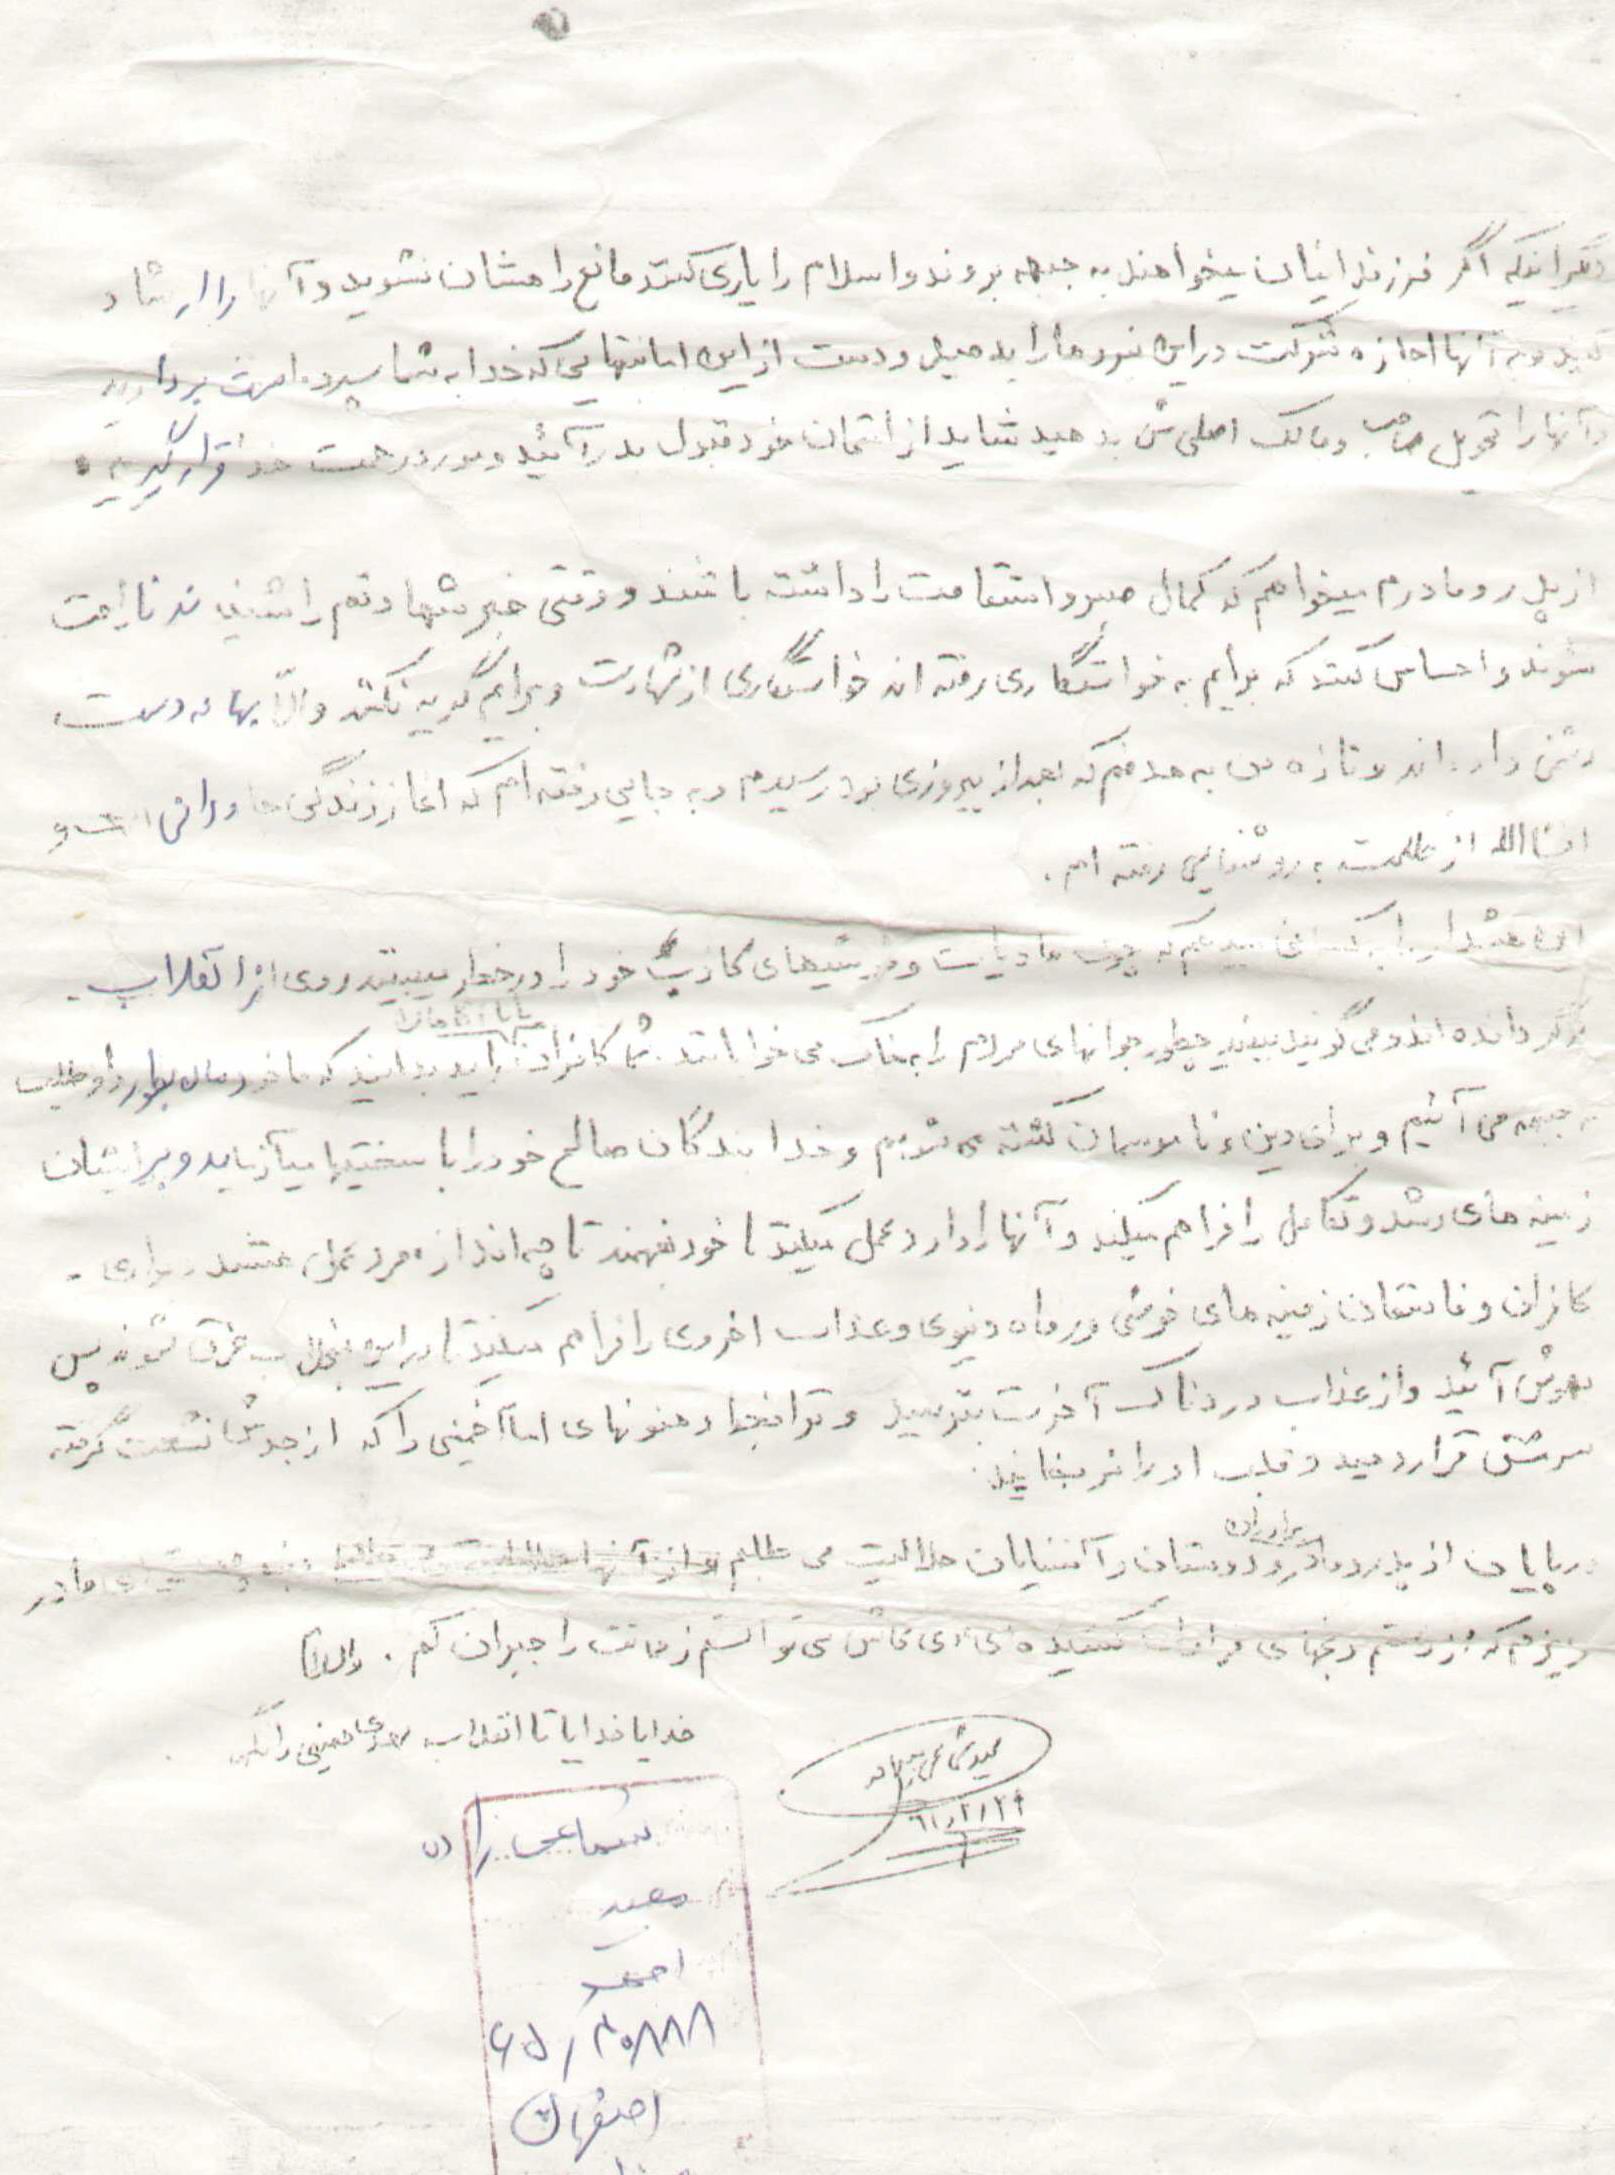 دیگر اینکه اگر فرزندانیان میخواهند به جبهه بروند و اسلام را یاری کنند مانع راهشان نشوید و آنها را ارشاد
کنید و به آنها اجازه شرکت در این نبردها را بدهید و دست از این امانتهایی که خدا به شما سپرده است بردارید
و آنها را تحویل صاحب و مالک اصلی‌ش بدهید شاید از امتحان خود قبول بدر آئید و مورد رحمت خدا قرار گیرید.
از پدر و مادرم میخواهم که کمال صبر و استقامت را داشته باشند و وقتی خبر شهادتم را شنیدند ناراحت
نشوند و احساس کنند که برایم به خواستگاری رفته‌اند خواستگاری از شهادت و برایم گریه نکنند والّا بهانه دست
دشمن داده‌اند و تازه من به هدفم که بعد از پیروزی بود رسیدم و به جایی رفته‌ام که آغاز زندگی جاودانی است و
انشاالله از ظلمت به روشنایی رفته ام.
این هشدار را به کسانی میدهم که چون مادیات و کاذب خود را در خطر میبینند روی از انقلاب
برگردانده‌اند و می گویند ببینید چطور جوانهای مردم را بخاک می خوابانند. شما کافران باید بدانید که ما خودمان داوطلب
به جبهه می آئیم و برای دین و ناموسمان کشته می شویم و خدا بندگان صالح خود را با سختیها میآزماید و برایشان
زمینه های رشد و تکامل را فراهم میکند و آنها را وارد عمل میکند تا خود بفهمند تا چه اندازه مرد عمل هستند و برای
کافران و فاسقان زمینه های خوشی و رفاه دنیوی و عذاب اخروی را فراهم میکند تا در این منجلاب غرق شوند پس
بهوش آئید و از عذاب دردناک آخرت بترسید و رهنمونهای امام خمینی را که از جدش نشعت گرفته
سرمشق قرار دهید و قلب او را نرنجانید.
در پایان از پدر و مادر و برادران و دوستان و آشنایان حلالیت می طلبم مادر
عزیزم که از دستم رنجهای فراوان کشیده‌ای ای کاش می توانستم زحمانت را جبران کنم. والسلام
خدایا خدایا تا انقلاب مهدی خمینی را نگهدار
مجید
۶۱/۲/۲۹
مجید
احمد
۶۵/۳۰۸۸۸
اصفهان